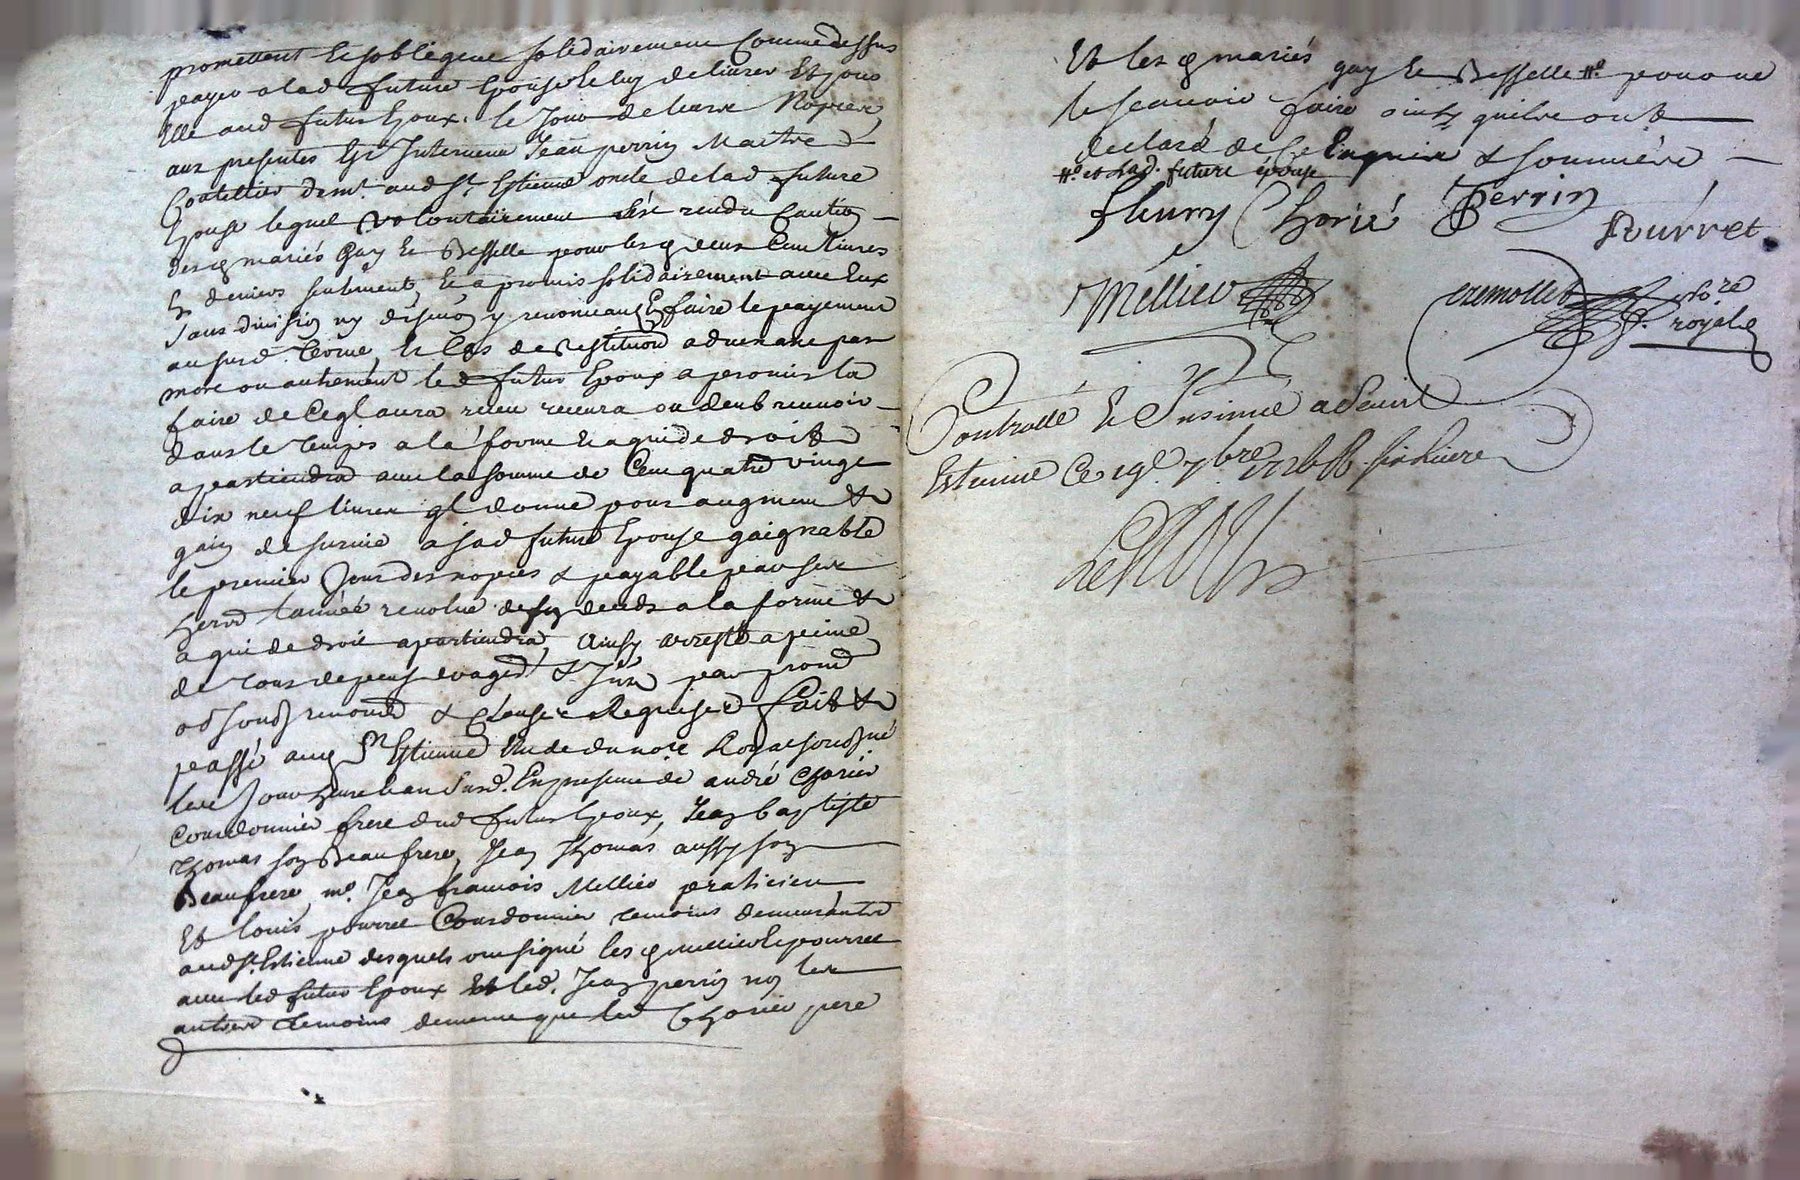 promettent et sobligent solidairement Comme dessus
payer a lad future Epouse et luy delivrer Et pour
Elle aud futur Epoux. le Jour de leurs Nopces,
aux presentes Est Intervenu Jean perrin Maitre
Coutellier demt. aud St. Estienne oncle de lad future
Epouse lequel volontairement s'est rendu Caution
desd mariés Guy et Besselle pour les deux Cent livres
En deniers seulement et a promis solidairement avec Eux
sans division ny discution y renonceant En faire le payement
au susd. terme, Et Cas de restitution advenant par
mort ou autrement led futur Epoux a promis la
faire de Ce ql aura receu recevra ou deub recevoir
dans le temps a la forme et a qui de droit
apartiendra avec la somme de Cent quatre vingt
dix neuf livres ql donne pour augment &
gain de survie a sad future Epouse gaignable
le premier Jour des nopces & payable par ses
hers. l'année revolue de son deceds a la forme &
a qui de droit apartiendra, Ainsy arresté a peine
de tous depens domages & Intts par promes.
oblig soub renond & Clauses Requises Fait &
passé aud St Estienne Etude du nore Royal soussigné
les Jour heure & an susd. En presence de andré Chorier
Courdonnier frere dud futur Epoux, Jean baptiste
Thomas son Beaufrere, Jean Thomas aussy son
Beaufrere, me. Jean francois Mellier praticien
Et louis pourret Courdonnier temoins demeurants
aud St. Estienne desquels ont signé les mellier Et pourret
avec led futur Epoux Et led. Jean perrin non les
autres temoins de meme que led Chorier pere
Et les mariés guy Et Besselle #° pour ne
le scavoir faire ainsy qu'ils ont
declaré de Ce Enquis & sommés
#° et lad. future épouse
fleurry Chorié Perrin
Pourret
Mellier
cremollet nore
royal
Controllé Et Insinué a Saint
Estienne Ce 19e. 7bre